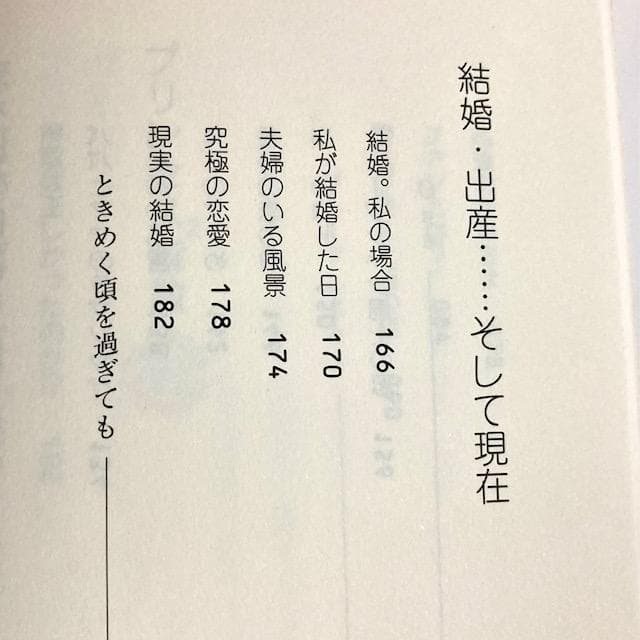 結婚・出産……そして現在
結婚。私の場合 166
私が結婚した日 170
夫婦のいる風景 174
究極の恋愛 178
現実の結婚 182
ときめく頃を過ぎても